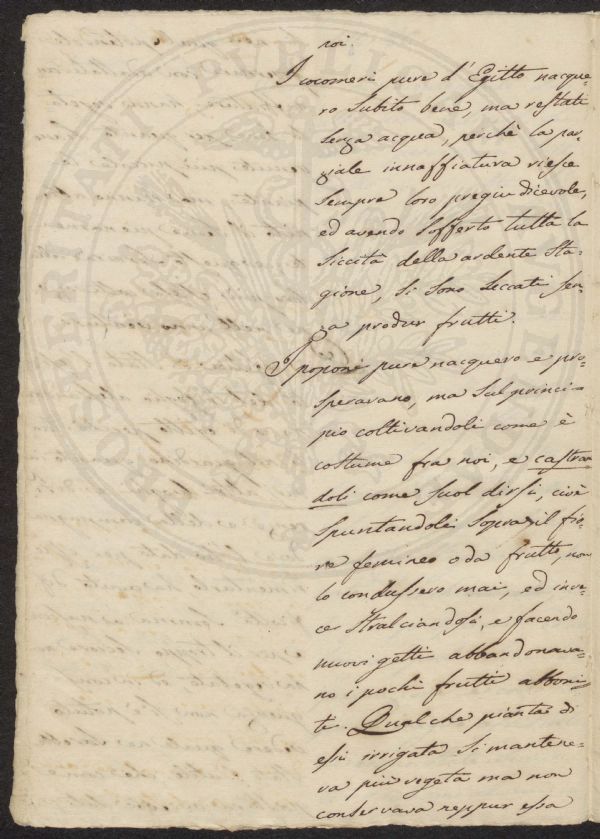 noi.
I cocomeri pure d'Egitto nacque-
ro subito bene, ma restati
senza acqua, perchè la par-
ziale innaffiatura riesce
sempre loro pregiudicevole,
ed avendo sofferto tutta la
siccità della ardente sta-
gione, si sono seccati sen-
za produr frutti.
I poponi pure nacquero e pro-
speravano, ma sul princi-
pio coltivandoli come è
costume fra noi, e castran
doli come suol dirsi, cioè
spuntandoli sopra il fio-
re femineo o da frutto, non
lo condussero mai, ed inve-
ce stralciandosi, e facendo
nuovi getti abbandonava-
no i pochi frutti abboni-
ti. Qualche pianta di
essi irrigata si mantene-
va più vegeta ma non
conservava neppur essa